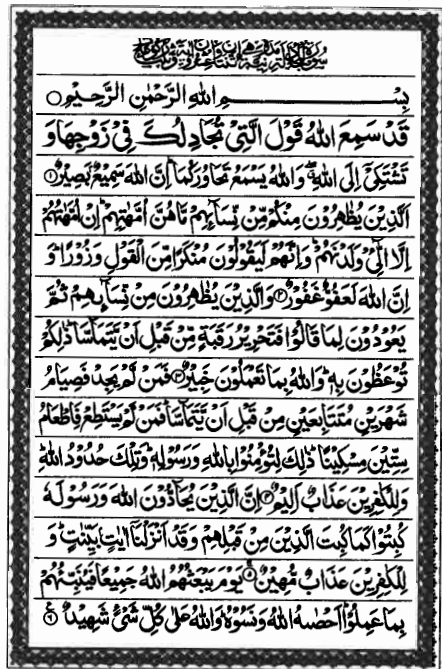 بِسْمِ اللهِ الرَّحْمٰنِ الرَّحِيْمِ ○
قَدْ سَمِعَ اللهُ قَوْلَ الَّتِيْ تُجَادِلُكَ فِيْ زَوْجِهَا وَ
تَشْتَكِيْٓ اِلَى اللهِ ۖ وَاللهُ يَسْمَعُ تَحَاوُرَكُمَا ؕ اِنَّ اللهَ سَمِيْعٌۢ بَصِيْرٌ ﴿۱﴾
اَلَّذِيْنَ يُظٰهِرُوْنَ مِنْكُمْ مِّنْ نِّسَآئِهِمْ مَّا هُنَّ اُمَّهٰتِهِمْ ؕ اِنْ اُمَّهٰتُهُمْ
اِلَّا الّٰٓـِٔيْ وَلَدْنَهُمْ ؕ وَاِنَّهُمْ لَيَقُوْلُوْنَ مُنْكَرًا مِّنَ الْقَوْلِ وَزُوْرًا ؕ وَ
اِنَّ اللهَ لَعَفُوٌّ غَفُوْرٌ ﴿۲﴾ وَالَّذِيْنَ يُظٰهِرُوْنَ مِنْ نِّسَآئِهِمْ ثُمَّ
يَعُوْدُوْنَ لِمَا قَالُوْا فَتَحْرِيْرُ رَقَبَةٍ مِّنْ قَبْلِ اَنْ يَّتَمَآسَّا ؕ ذٰلِكُمْ
تُوْعَظُوْنَ بِهٖ ؕ وَاللهُ بِمَا تَعْمَلُوْنَ خَبِيْرٌ ﴿۳﴾ فَمَنْ لَّمْ يَجِدْ فَصِيَامُ
شَهْرَيْنِ مُتَتَابِعَيْنِ مِنْ قَبْلِ اَنْ يَّتَمَآسَّا ۚ فَمَنْ لَّمْ يَسْتَطِعْ فَاِطْعَامُ
سِتِّيْنَ مِسْكِيْنًا ؕ ذٰلِكَ لِتُؤْمِنُوْا بِاللهِ وَرَسُوْلِهٖ ؕ وَتِلْكَ حُدُوْدُ اللهِ ؕ
وَلِلْكٰفِرِيْنَ عَذَابٌ اَلِيْمٌ ﴿۴﴾ اِنَّ الَّذِيْنَ يُحَآدُّوْنَ اللهَ وَرَسُوْلَهٗ
كُبِتُوْا كَمَا كُبِتَ الَّذِيْنَ مِنْ قَبْلِهِمْ وَقَدْ اَنْزَلْنَآ اٰيٰتٍۢ بَيِّنٰتٍ ؕ وَ
لِلْكٰفِرِيْنَ عَذَابٌ مُّهِيْنٌ ﴿۵﴾ يَوْمَ يَبْعَثُهُمُ اللهُ جَمِيْعًا فَيُنَبِّئُهُمْ
بِمَا عَمِلُوْا ؕ اَحْصٰىهُ اللهُ وَنَسُوْهُ ؕ وَاللهُ عَلٰى كُلِّ شَيْءٍ شَهِيْدٌ ﴿۶﴾ ع